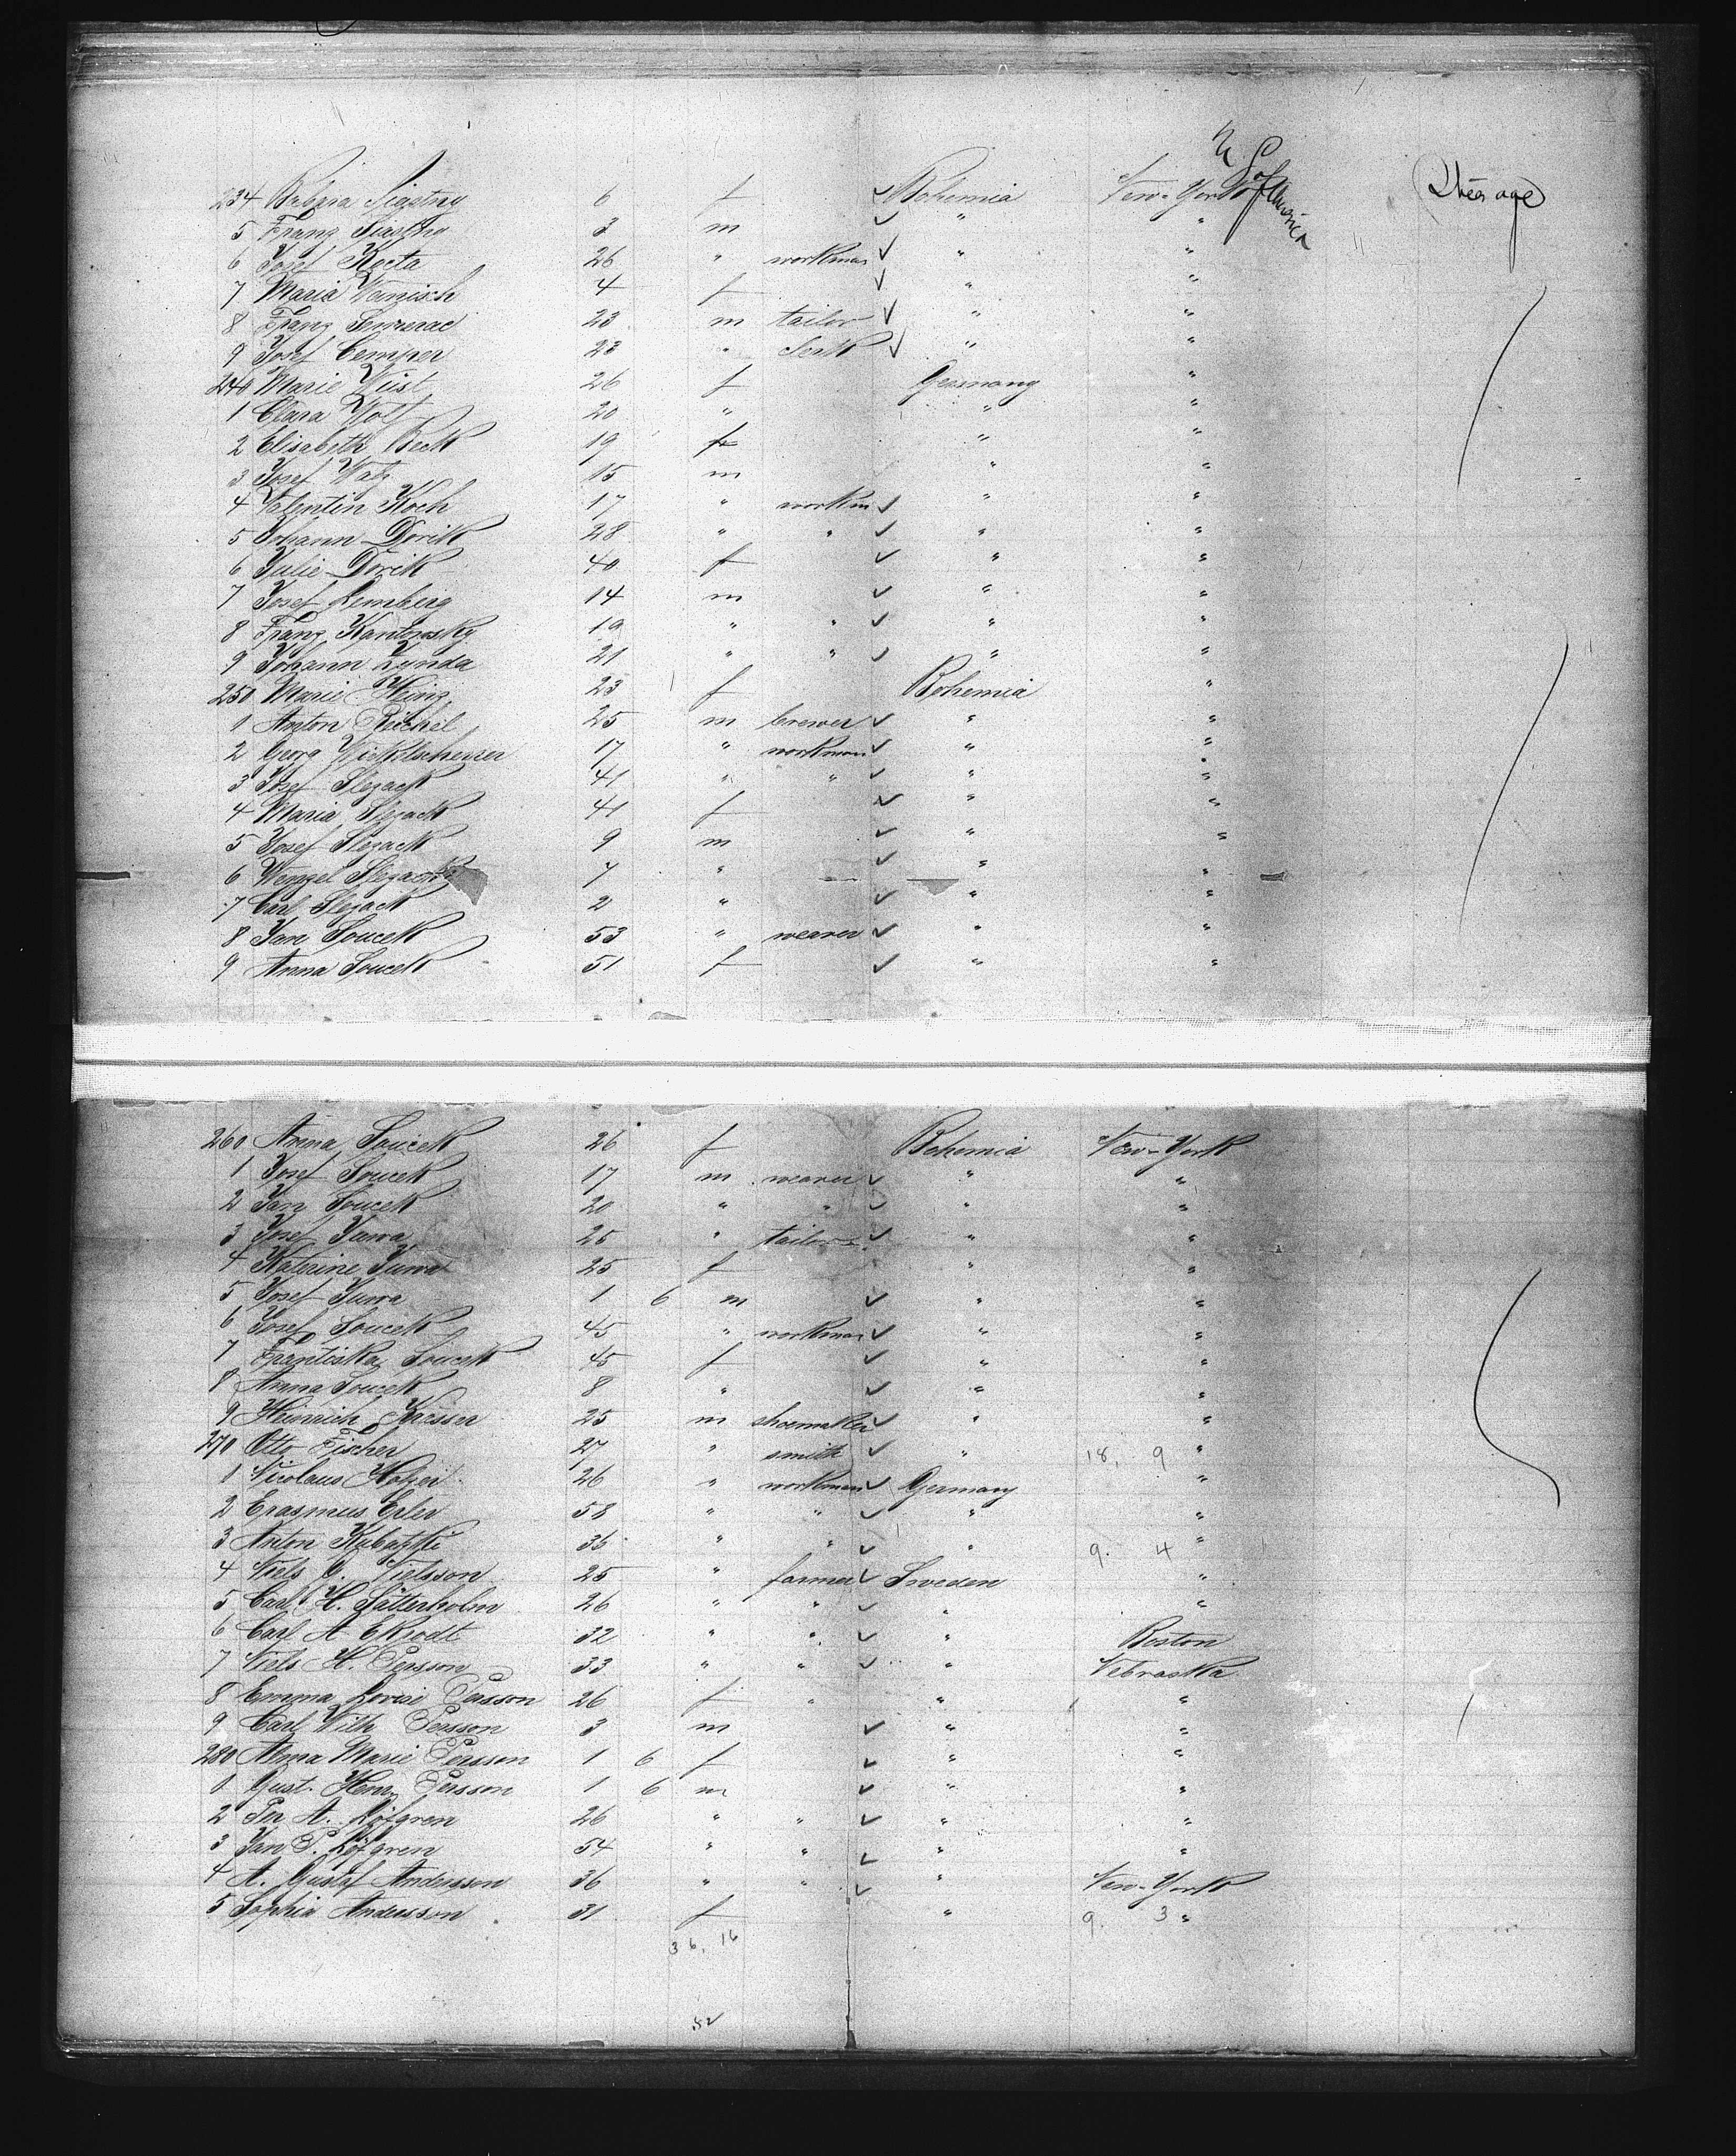 U. S. of America
234 Barbara Siastny 6 f ✓ Bohemia New-York Steerage
5 Franz Siastny 3 m ✓ " "
6 Josef Kecta 26 " workman ✓ " "
7 Maria Wanisch 4 f ✓ " "
8 Franz 23 m tailor ✓ " "
9 Josef Cemper 23 " ✓ " "
240 Marie Wüst 26 f Germany "
1 Clara Wolf 20 " " "
2 Elisabeth Beck 19 f " "
3 Josef Watz 15 m " "
4 Valentin Koch 17 " workm ✓ " "
5 Johann Dorik 28 " " ✓ " "
6 Julie Dorik 40 f ✓ " "
7 Josef Lemberg 14 m ✓ " "
8 Franz Kantowsky 19 " " ✓ " "
9 Johann Lynda 21 " " ✓ " "
250 Marie Heinz 23 f Bohemia "
1 Anton Reichel 25 m brewer ✓ " "
2 Georg 17 " workman ✓ " "
3 Josef Slezack 41 " " ✓ " "
4 Maria Slezack 41 f ✓ " "
5 Josef Slezack 9 m ✓ " "
6 Wenzel Slezack 7 " ✓ " "
7 Carl Slezack 2 " ✓ " "
8 Jan Soucek 53 " weaver ✓ " "
9 Anna Soucek 51 f ✓ " "
260 Anna Soucek 26 f Bohemia New-York
1 Josef Soucek 17 m weaver ✓ " "
2 Jan Soucek 20 " " ✓ " "
3 Josef Juwa 25 " tailor ✓ " "
4 Katerine Juwa 25 f " "
5 Josef Juwa 1 6 m ✓ " "
6 Josef Soucek 45 " workman ✓ " "
7 Frantiska Soucek 45 f ✓ " "
8 Anna Soucek 8 " ✓ " "
9 Heinrich Kresser 25 m shoemaker ✓ " "
270 Otto Fischer 27 " smith ✓ " 18, 9 "
1 Nicolaus Holzer 26 " workman ✓ Germany "
2 Erasmus Erler 58 " " ✓ " "
3 Anton Kubatzki 36 " " ✓ " 9. 4 "
4 Niels O. Nielsson 25 " farmer ✓ Sweden "
5 Carl H. Sätterholm 26 " " ✓ " "
6 Carl A Ekrodt 32 " " ✓ " Boston
7 Niels H. Persson 33 " " ✓ " Nebraska
8 Emma Lovise Persson 26 f " " "
9 Carl Wilh Persson 3 m ✓ " "
280 Alma Marie Persson 1 6 f ✓ " "
1 Gust. Henr. Persson 1 6 m ✓ " "
2 Per A. Löfgren 26 " " ✓ " "
3 Jan P. Löfgren 54 " " ✓ " "
4 A. Gustaf Andersson 36 " " ✓ " New-York
5 Sophia Andersson 31 f " 9. 3 "
36, 16
52